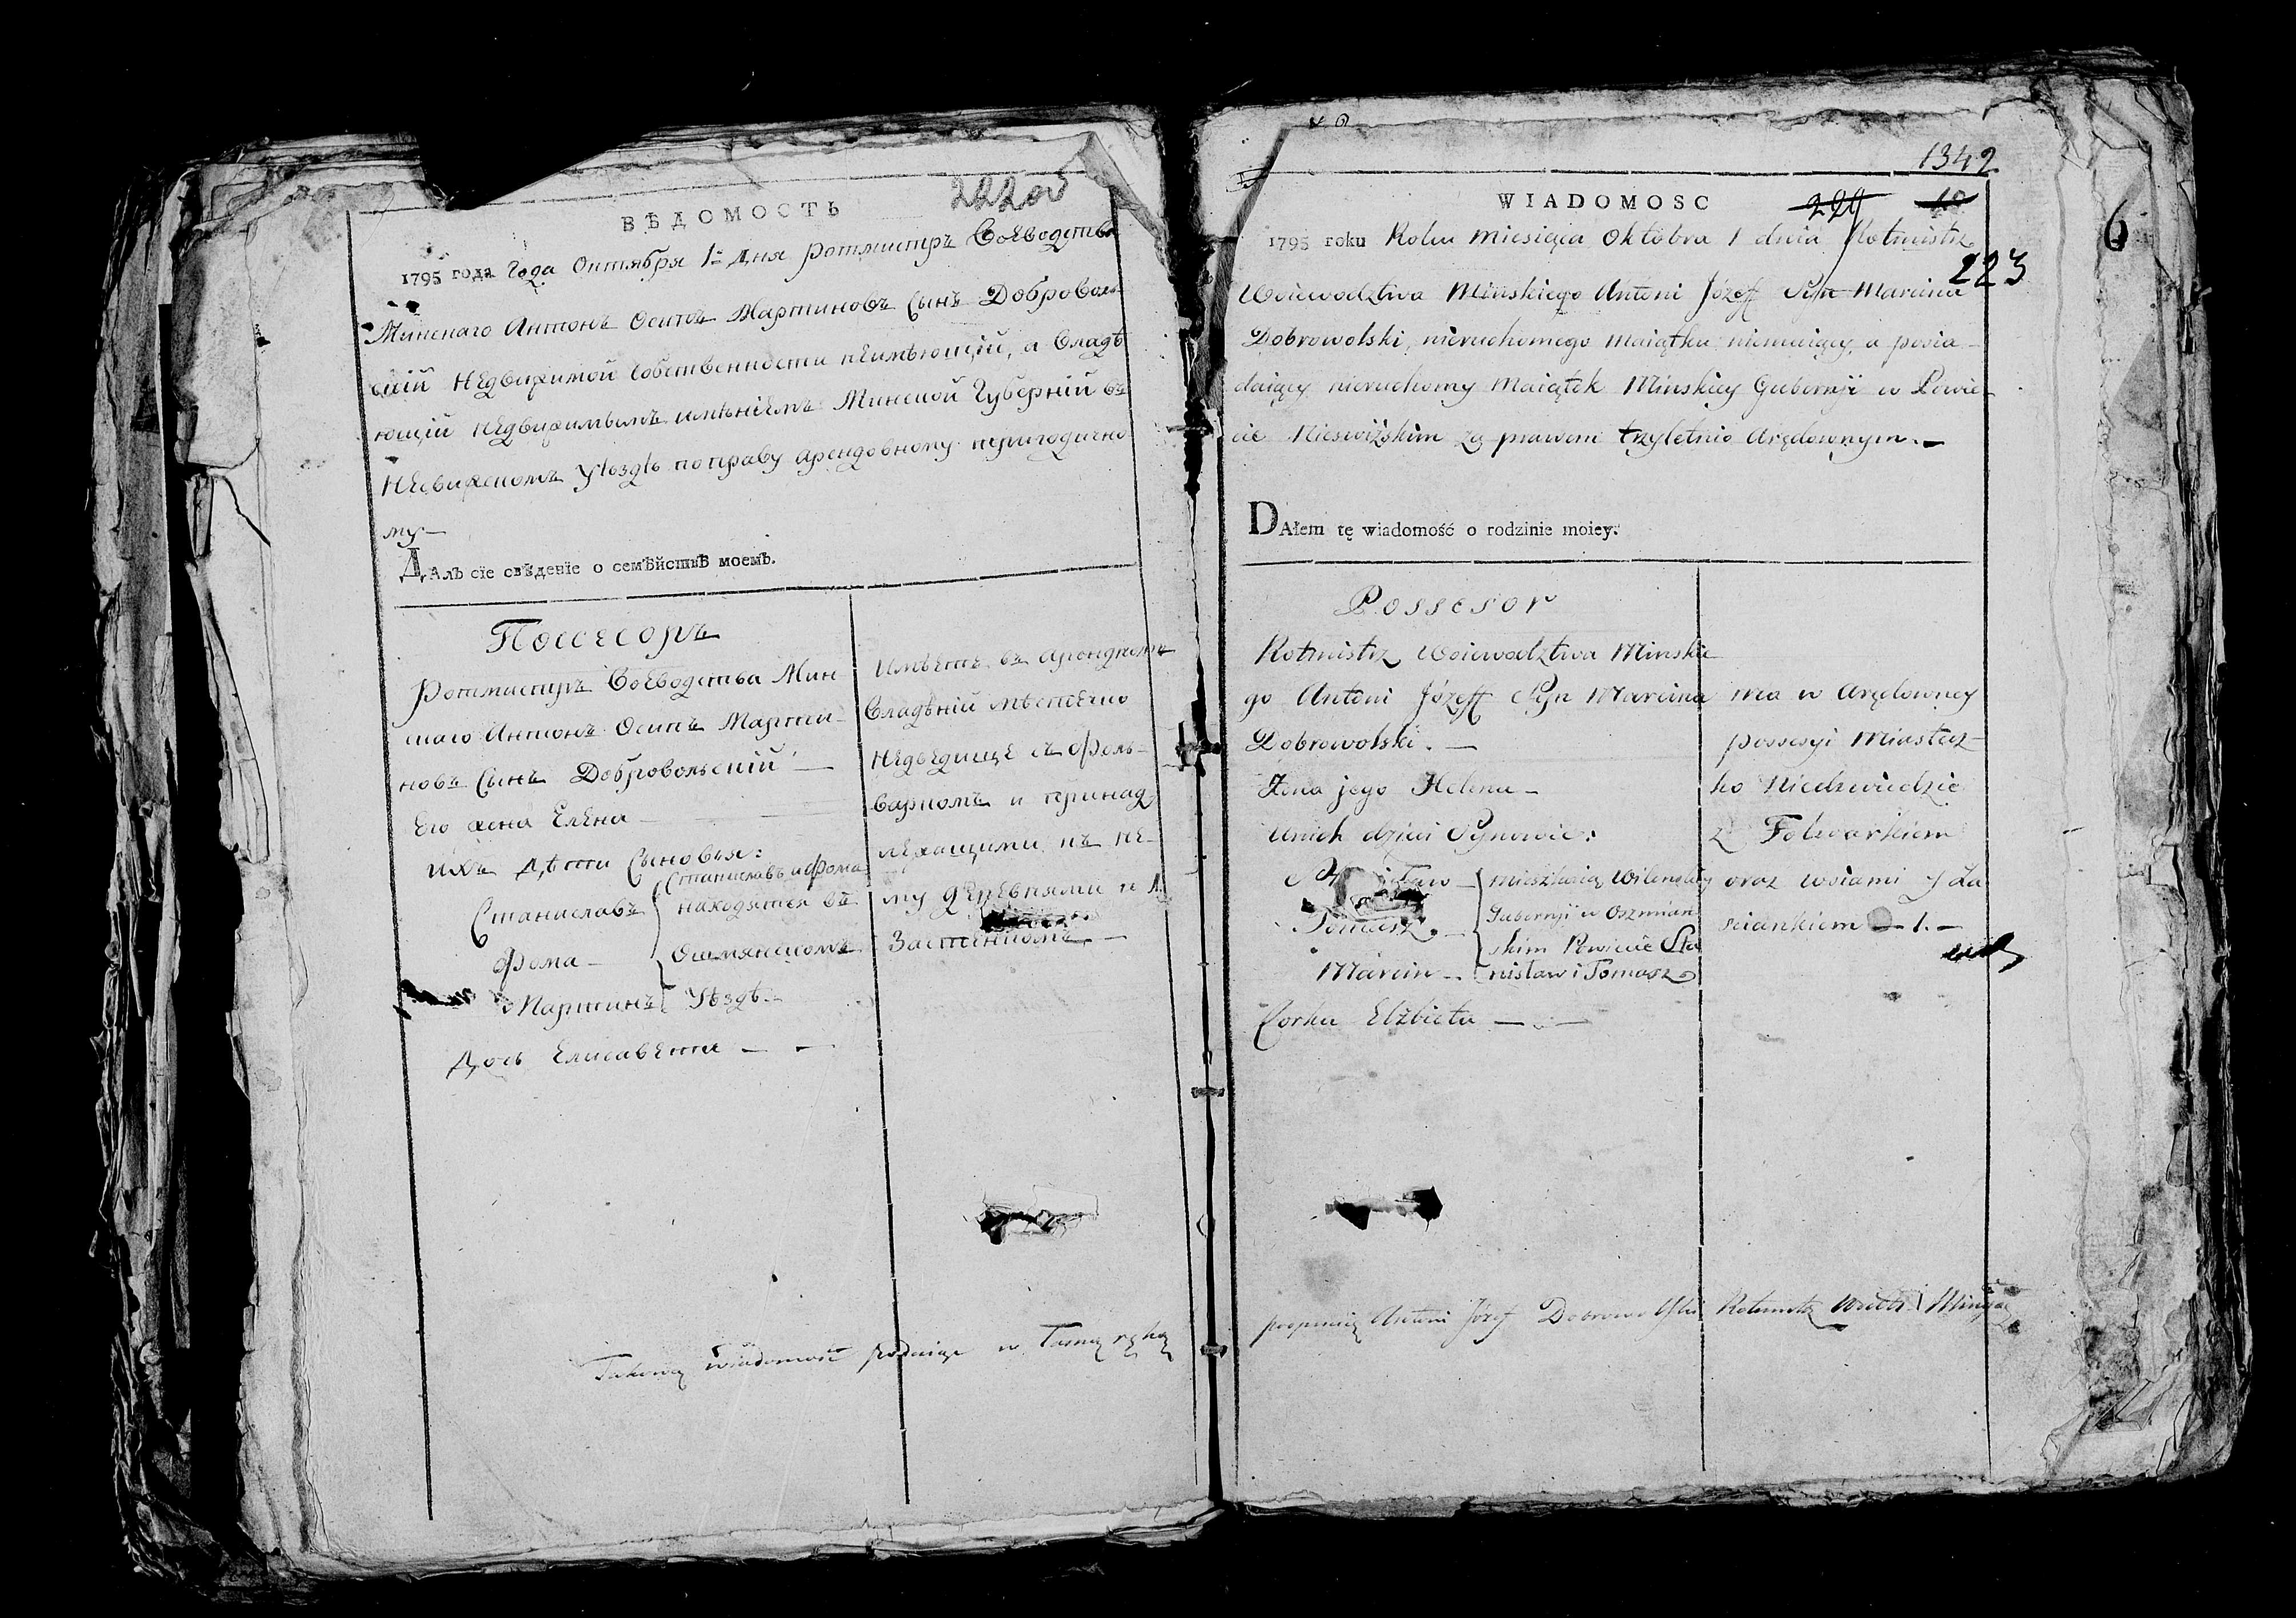 222об
ВѢДОМОСТЬ
1795 года Года Октября 1го Дня Ротмистръ Воеводства
Минскаго Антонъ Осипъ Мартиновъ Сынъ Доброволь-
скій Недвижимой собственности неимѣющій, а владѣ
ющій недвижимымъ имѣніемъ Минской Губерніи въ
Несвижскомъ Уѣздѣ поправу арендовному периодично
му —
ДАлъ сіе свѣденіе о семѣйствѣ моемъ.
Поссесоръ
Ротмистръ Воеводства Мин
скаго Антонъ Осипъ Марти-
новъ Сынъ Добровольскій —
Его жена Елена —
ихъ Дѣти Сыновья:
Станиславъ и Фома
Станиславъ находятся въ
Фома — Ошмянскомъ
Мартинъ Уѣздѣ. —
Дочь Елисавета — —
имѣетъ въ арендномъ
владѣніи мѣстечко
Недведице съ фоль-
варкомъ и принад
лежащими къ не-
му деревнями и 1.
Застенкомъ. —
Takową wiadomość podaiąc w Tasną ręką
1342
WIADOMOSC
229 10
223
6
1795 roku Roku Miesiąca Oktobra 1 dnia Rotmistrz
Woiewodztwa Mińskiego Antoni Józeff Syn Marcina
Dobrowolski, nieruchomego maiątku niemaiący, a posia-
daiący nieruchomy Maiątek Minskiey Gubernji w Powie-
cie Nieswiżskim za prawem trzyletnio Arędownym. —
DAłem tę wiadomość o rodzinie moiey.
Possesor
Rotmistrz Woiewodztwa Minskie
go Antoni Józeff Syn Marcina
Dobrowolski. —
Żona jego Helena —
Unich dzieci Synowie:
mieszkaią Wilenskiey
Tomasz. — Gubernji w Oszmian
skim Powiecie Sta
Marcin — nisław i Tomasz
Corka Elżbieta — . —
ma w Arędowney
possesyi Miastecz-
ko Niedzwiedzie
z Folwarkiem
oraz wsiami y Za
sciankiem — 1. —
Antoni Józef Dobrowolski Rotmistrz